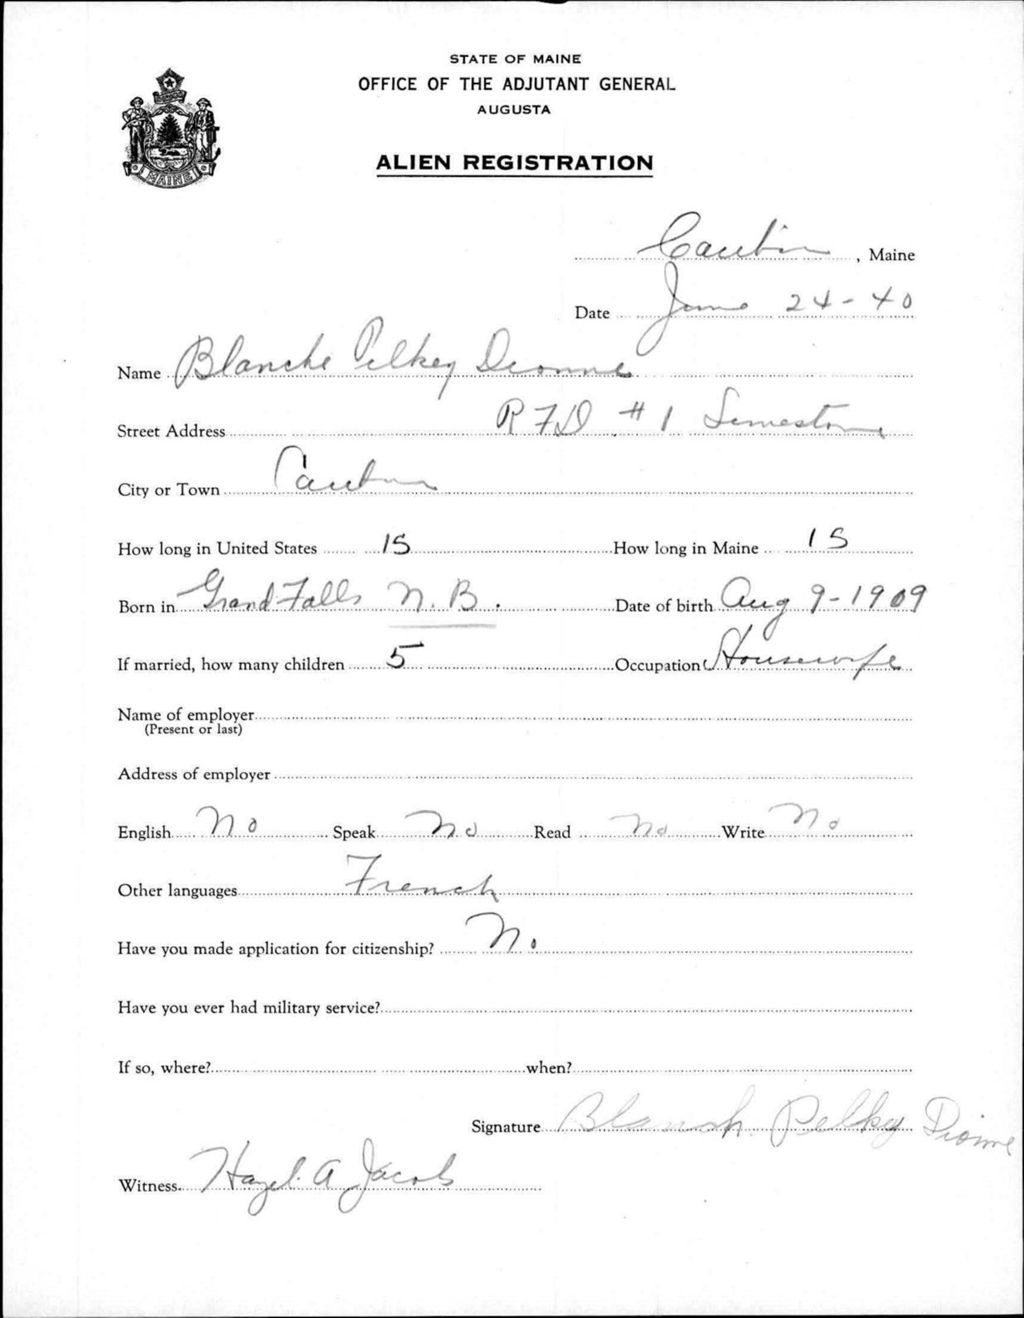 STATE OF MAINE
OFFICE OF THE ADJUTANT GENERAL
AUGUSTA
ALIEN REGISTRATION
MAINE
Caribou, Maine
Date June 24-40
Name Blanche Pelkey Dionne
Street Address R F D #1 Limestone
City or Town Caribou
How long in United States 15 How long in Maine 15
Born in Grand Falls N. B. Date of birth Aug 9-1909
If married, how many children 5 Occupation Housewife
Name of employer
(Present or last)
Address of employer
English No Speak No Read No Write No
Other languages French
Have you made application for citizenship? No
Have you ever had military service?
If so, where? when?
Signature Blansh Pelkey Dionne
Witness Hazel A Jacobs